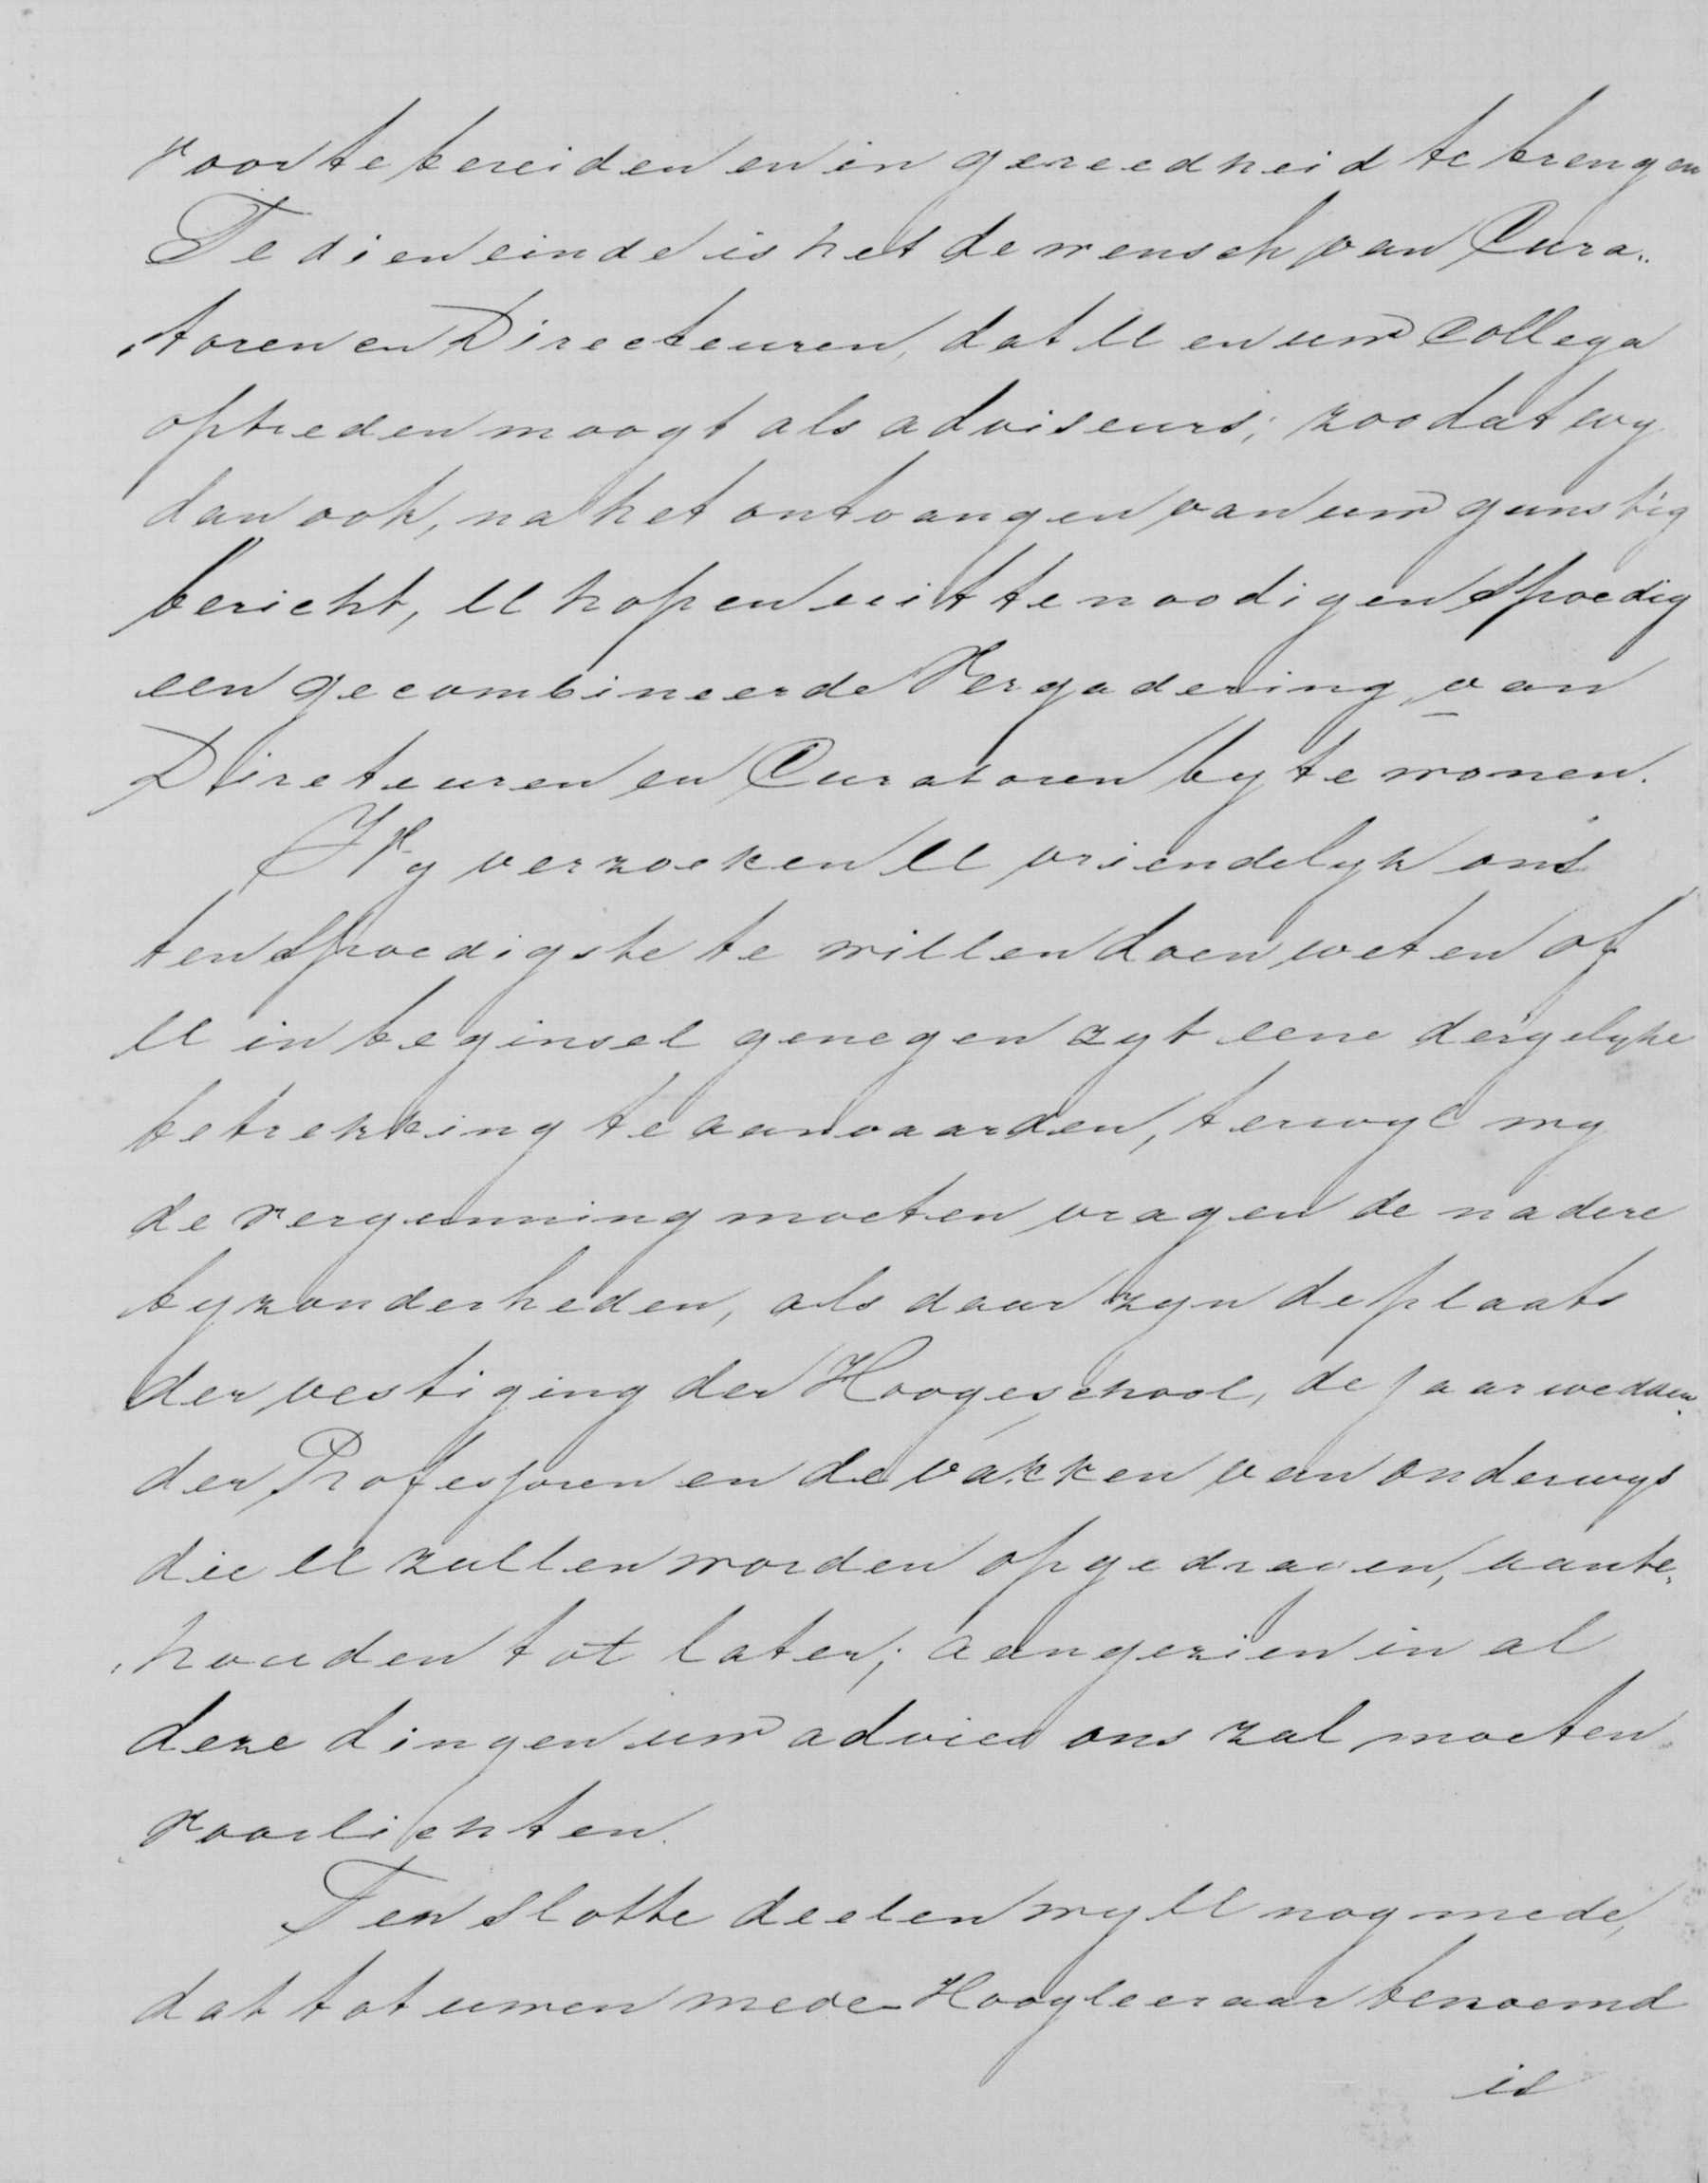 voor te bereiden en in gereedheid te brengen
Te dien einde is het de wensch van Cura„
„toren en Directeuren, dat U en uw Collega
optreden moogt als adviseurs; zoodat wy
dan ook, na het ontvangen van uw gunstig
bericht, U hopen uit te noodigen spoedig
een gecombineerde Vergadering van
Direteuren en Curatoren by te wonen.
Wy verzoeken U vriendelyk ons
ten spoedigste te willen doen weten of
U in beginsel genegen zyt eene dergelyke
betrekking te aanvaarden, terwyl wy
de vergunning moeten vragen de nadere
byzonderheden, als daar zyn de plaats
der vestiging der Hoogeschool, de jaarwedden
der Professoren en de vakken van onderwys
die U zullen worden opgedragen, aante„
„houden tot later; aangezien in al
deze dingen uw advies ons zal moeten
voorlichten.
Ten slotte deelen wy U nog mede,
dat tot uwen mede-Hoogleeraar benoemd
is